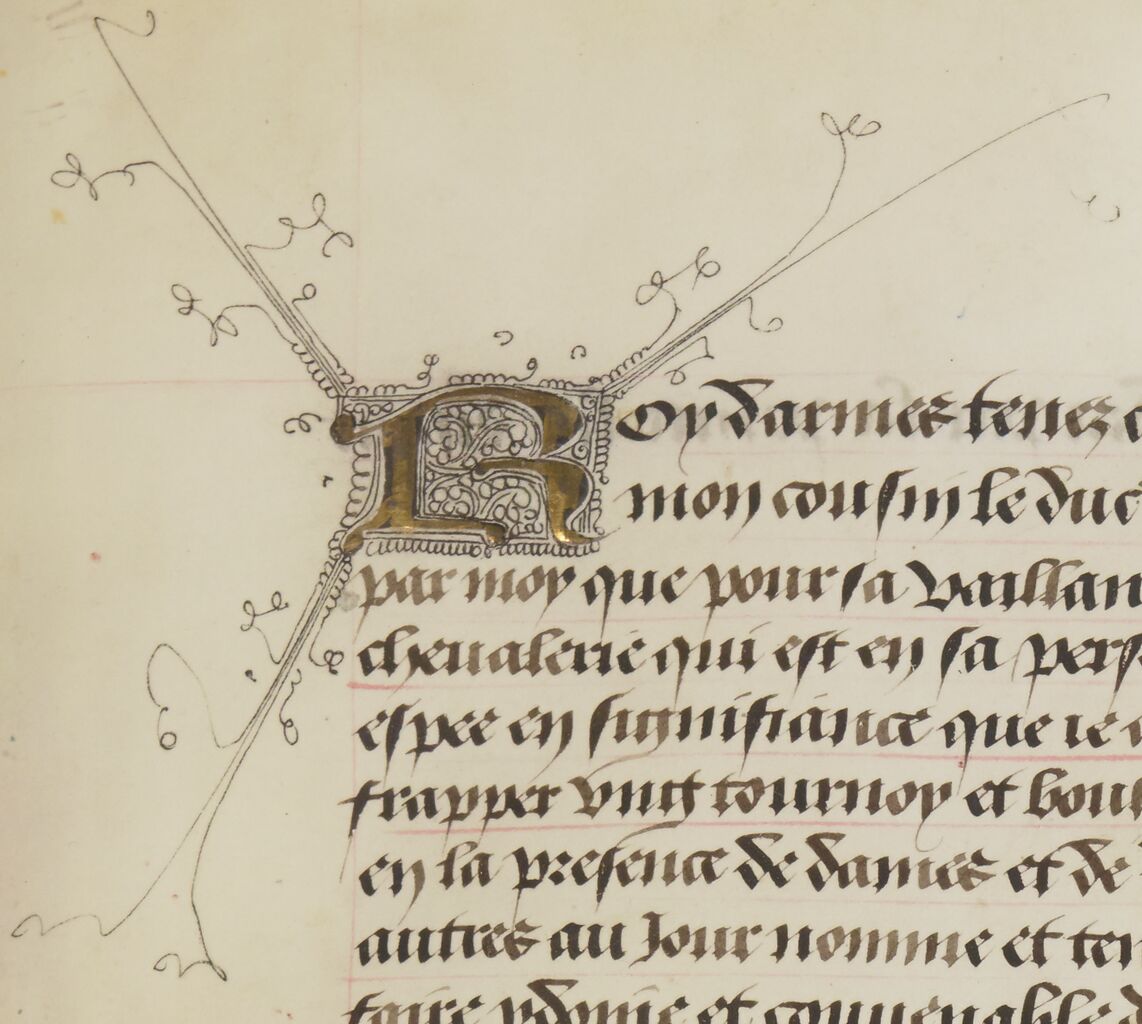 Roy darmes tenez
mon cousin le duc
par moy que pour sa vaillan
cheualerie qui est en sa pers
espee en signifiance que ie
frapper vng tournoy et bouh
en la presence de dames et de
autres au Jour nomme et ten
faire ydoine et conuenable